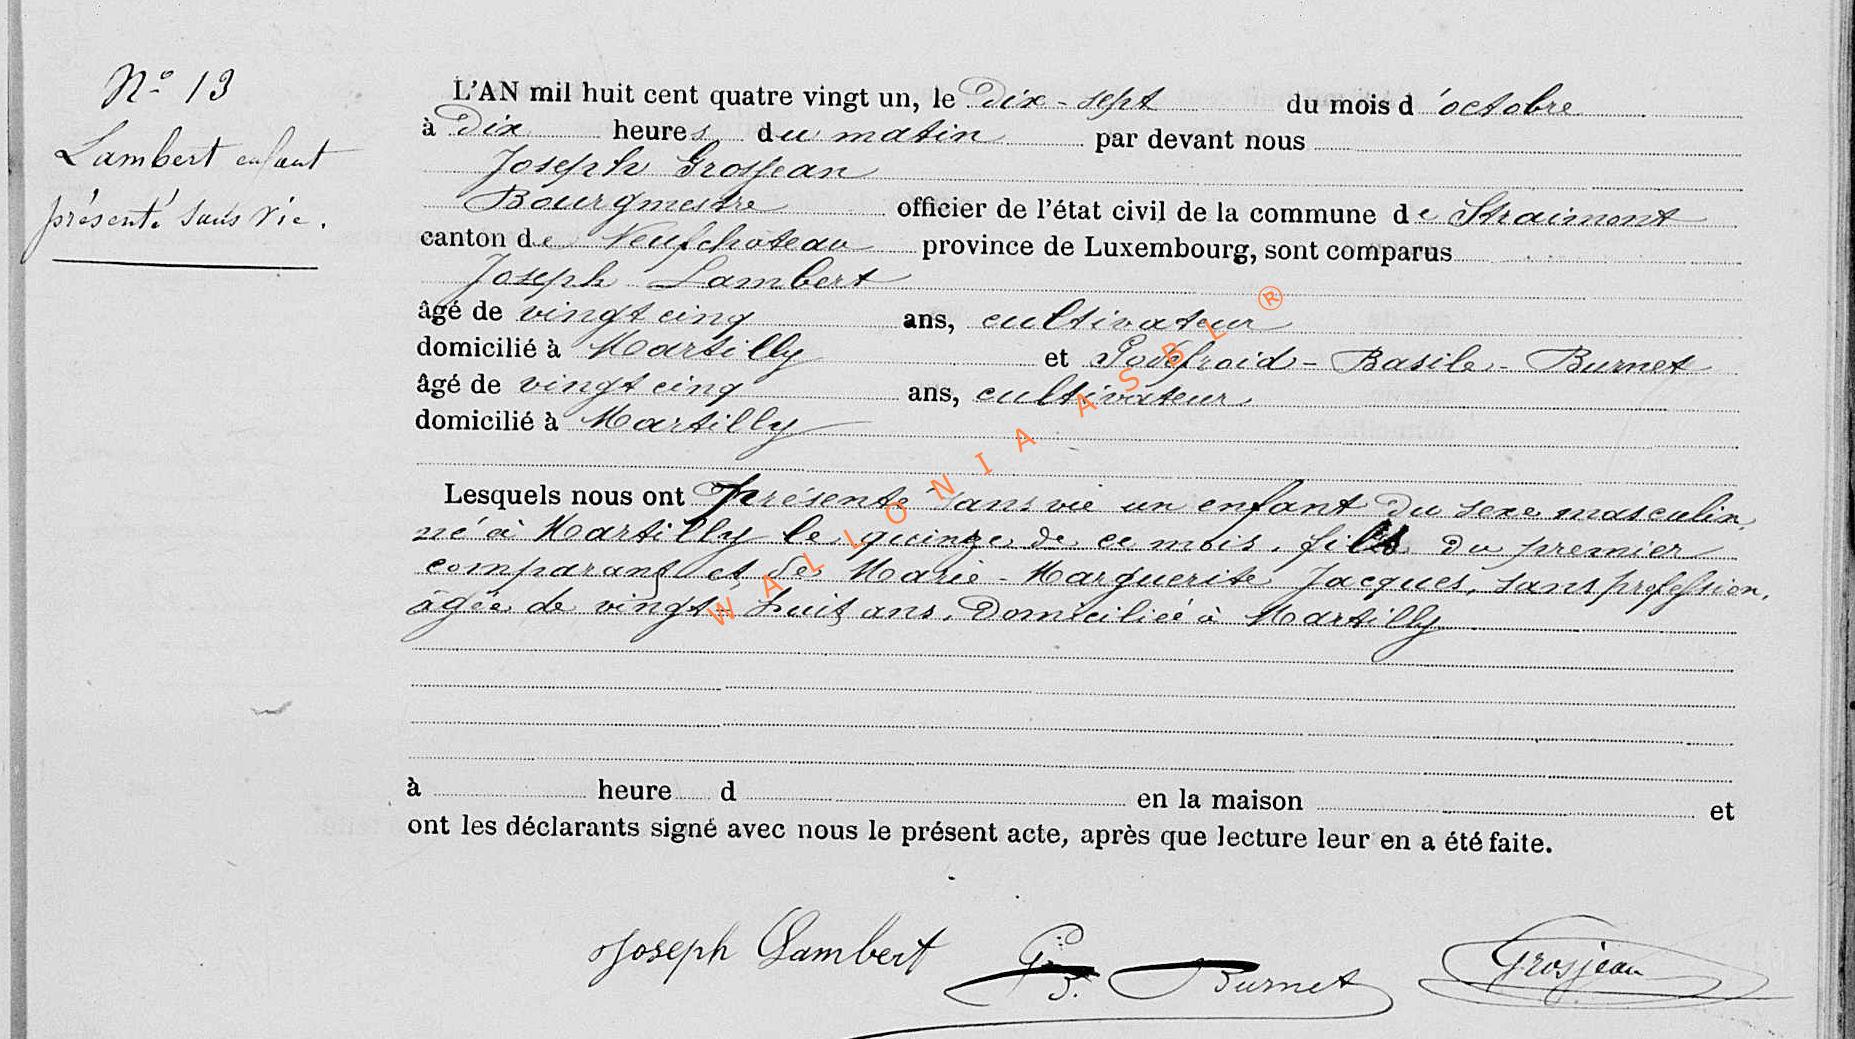 N° 13
Lambert enfant
présenté sans vie.
L'AN mil huit cent quatre vingt un, le dix-sept du mois d'octobre
à dix heures du matin par devant nous
Joseph Grosjean
Bourgmestre officier de l'état civil de la commune de Straimont
canton de Neufchateau province de Luxembourg, sont comparus
Joseph Lambert
âgé de vingt cinq ans, cultivateur
domicilié à Martilly et Godefroid-Basile-Burnet
âgé de vingt cinq ans, cultivateur
domicilié à Martilly
Lesquels nous ont présenté sans vie un enfant du sexe masculin,
né à Martilly le quinze de ce mois, fils du premier
comparant et de Marie-Marguerite Jacques, sans profession,
âgée de vingt-huit ans, domiciliée à Martilly
à heure d en la maison et
ont les déclarants signé avec nous le présent acte, après que lecture leur en a été faite.
Joseph Lambert G. B. Burnet Grosjean
WALLONIA ASBL ®